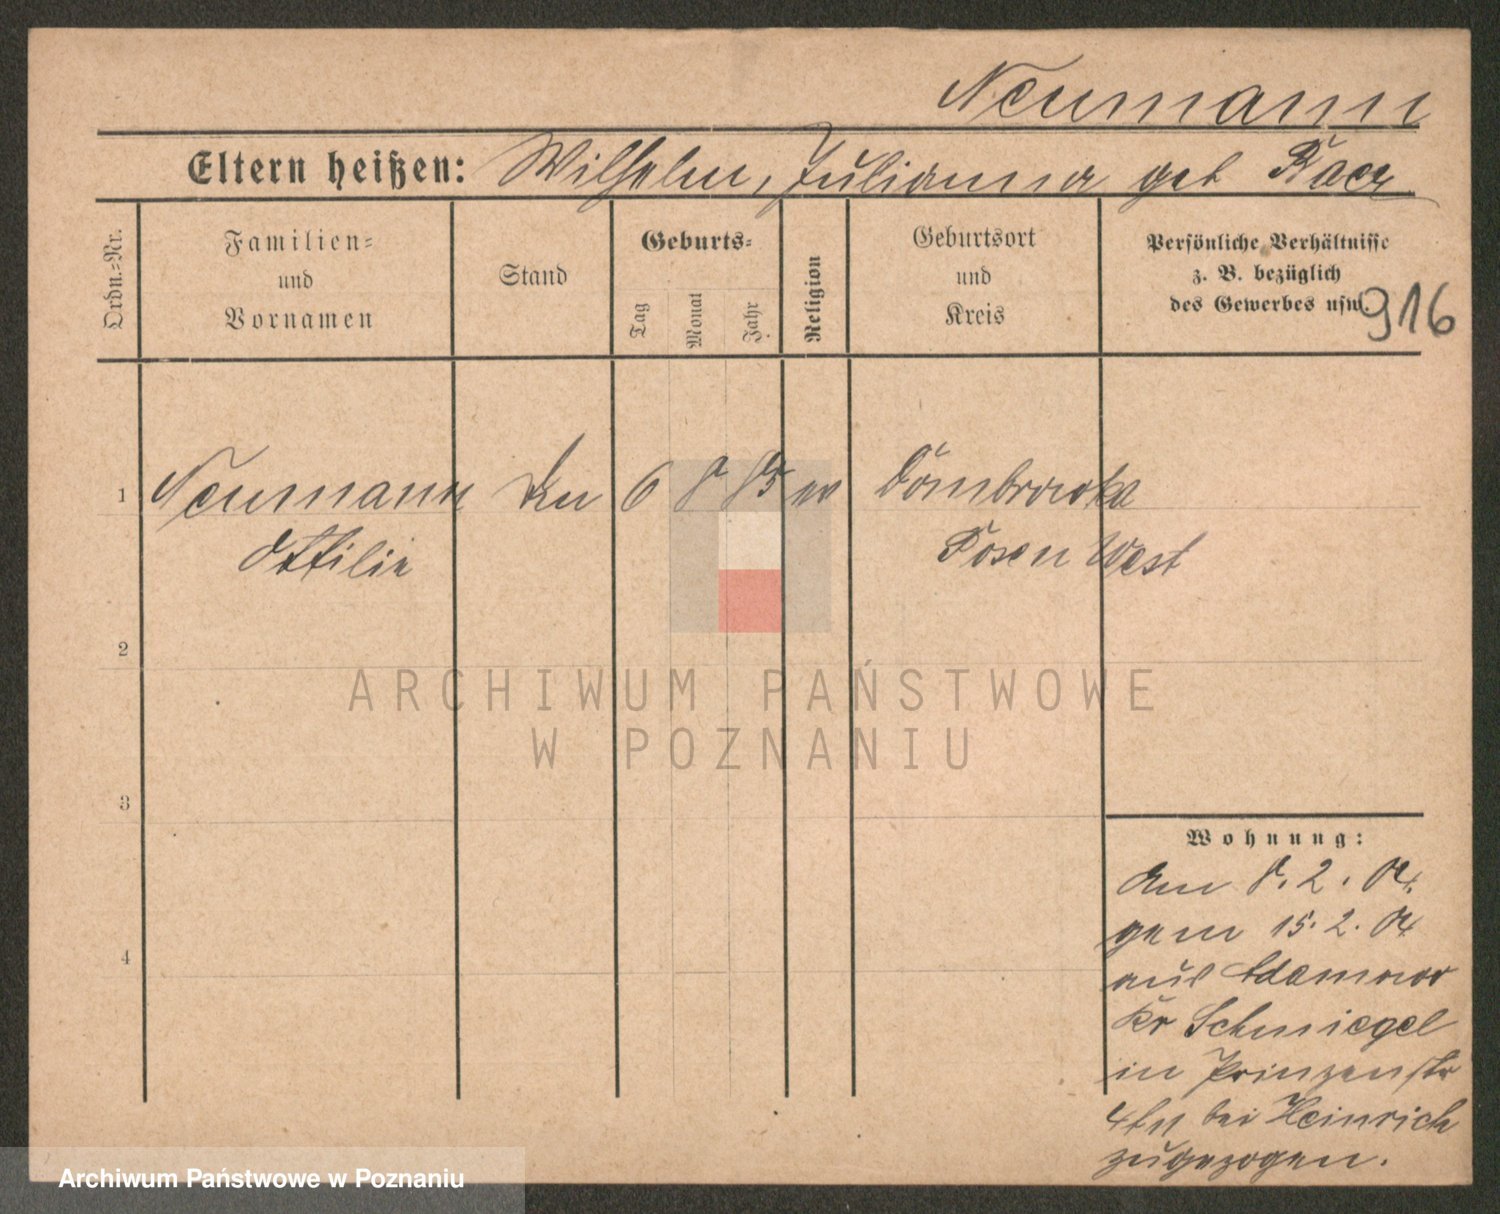 Neumann
Eltern heißen: Wilhelm, Julianna geb
Ordn.=Nr.
Familien=
und
Vornamen
Stand
Geburts=
Tag
Monat
Jahr
Religion
Geburtsort
und
Kreis
Persönliche Verhältnisse
z. B. bezüglich
des Gewerbes usw.
916
1
Neumann
6 8 85 ev
Dombrowka
Ottilie
Posen West
2
ARCHIWUM PAŃSTWOWE
W POZNANIU
3
Wohnung:
Am 8. 2. 04.
gem 15. 2. 04
4
aus
Kr Schmiegel
in Prinzenstr
bei Heinrich
zugezogen.
Archiwum Państwowe w Poznaniu